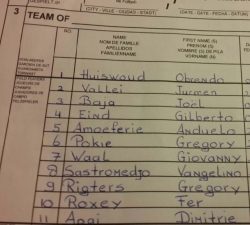 3 TEAM OF
CITY - VILLE - CIUDAD - STADT
NO.
NAME
NOM DE FAMILLE
APELLIDOS
FAMILIENNAME
FIRST NAME (S)
PRENOM (S)
NOMBRE (S) DE PILA
VORNAME (N)
1 Huiswoud Obrando
2 Vallei Jurmen
3 Baja Joël
4 Eind Gilberto
5 Amoeferie Anduelo
6 Pokie Gregory
7 Waal Giovanny
8 Sastromedjo Vangelino
9 Rigters Gregory
10 Roxey Fer
11 Dimitrie